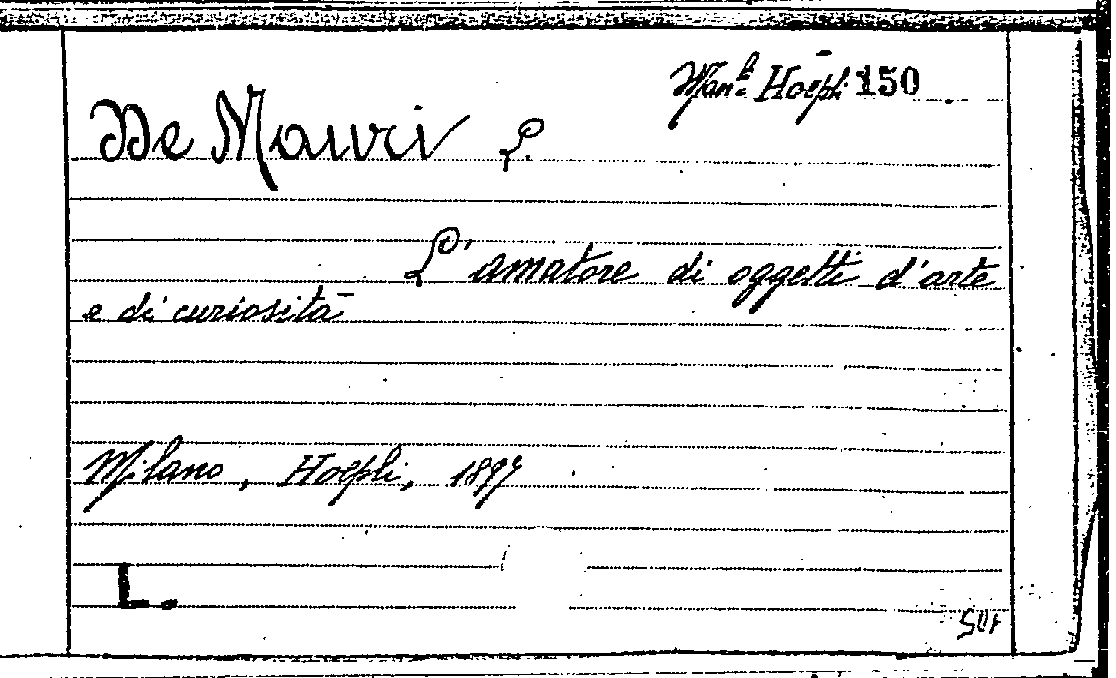 Man.li Hoepli 150
De Mauri L.
L'amatore di oggetti d'arte
e di curiosità
Milano, Hoepli, 1897
L.